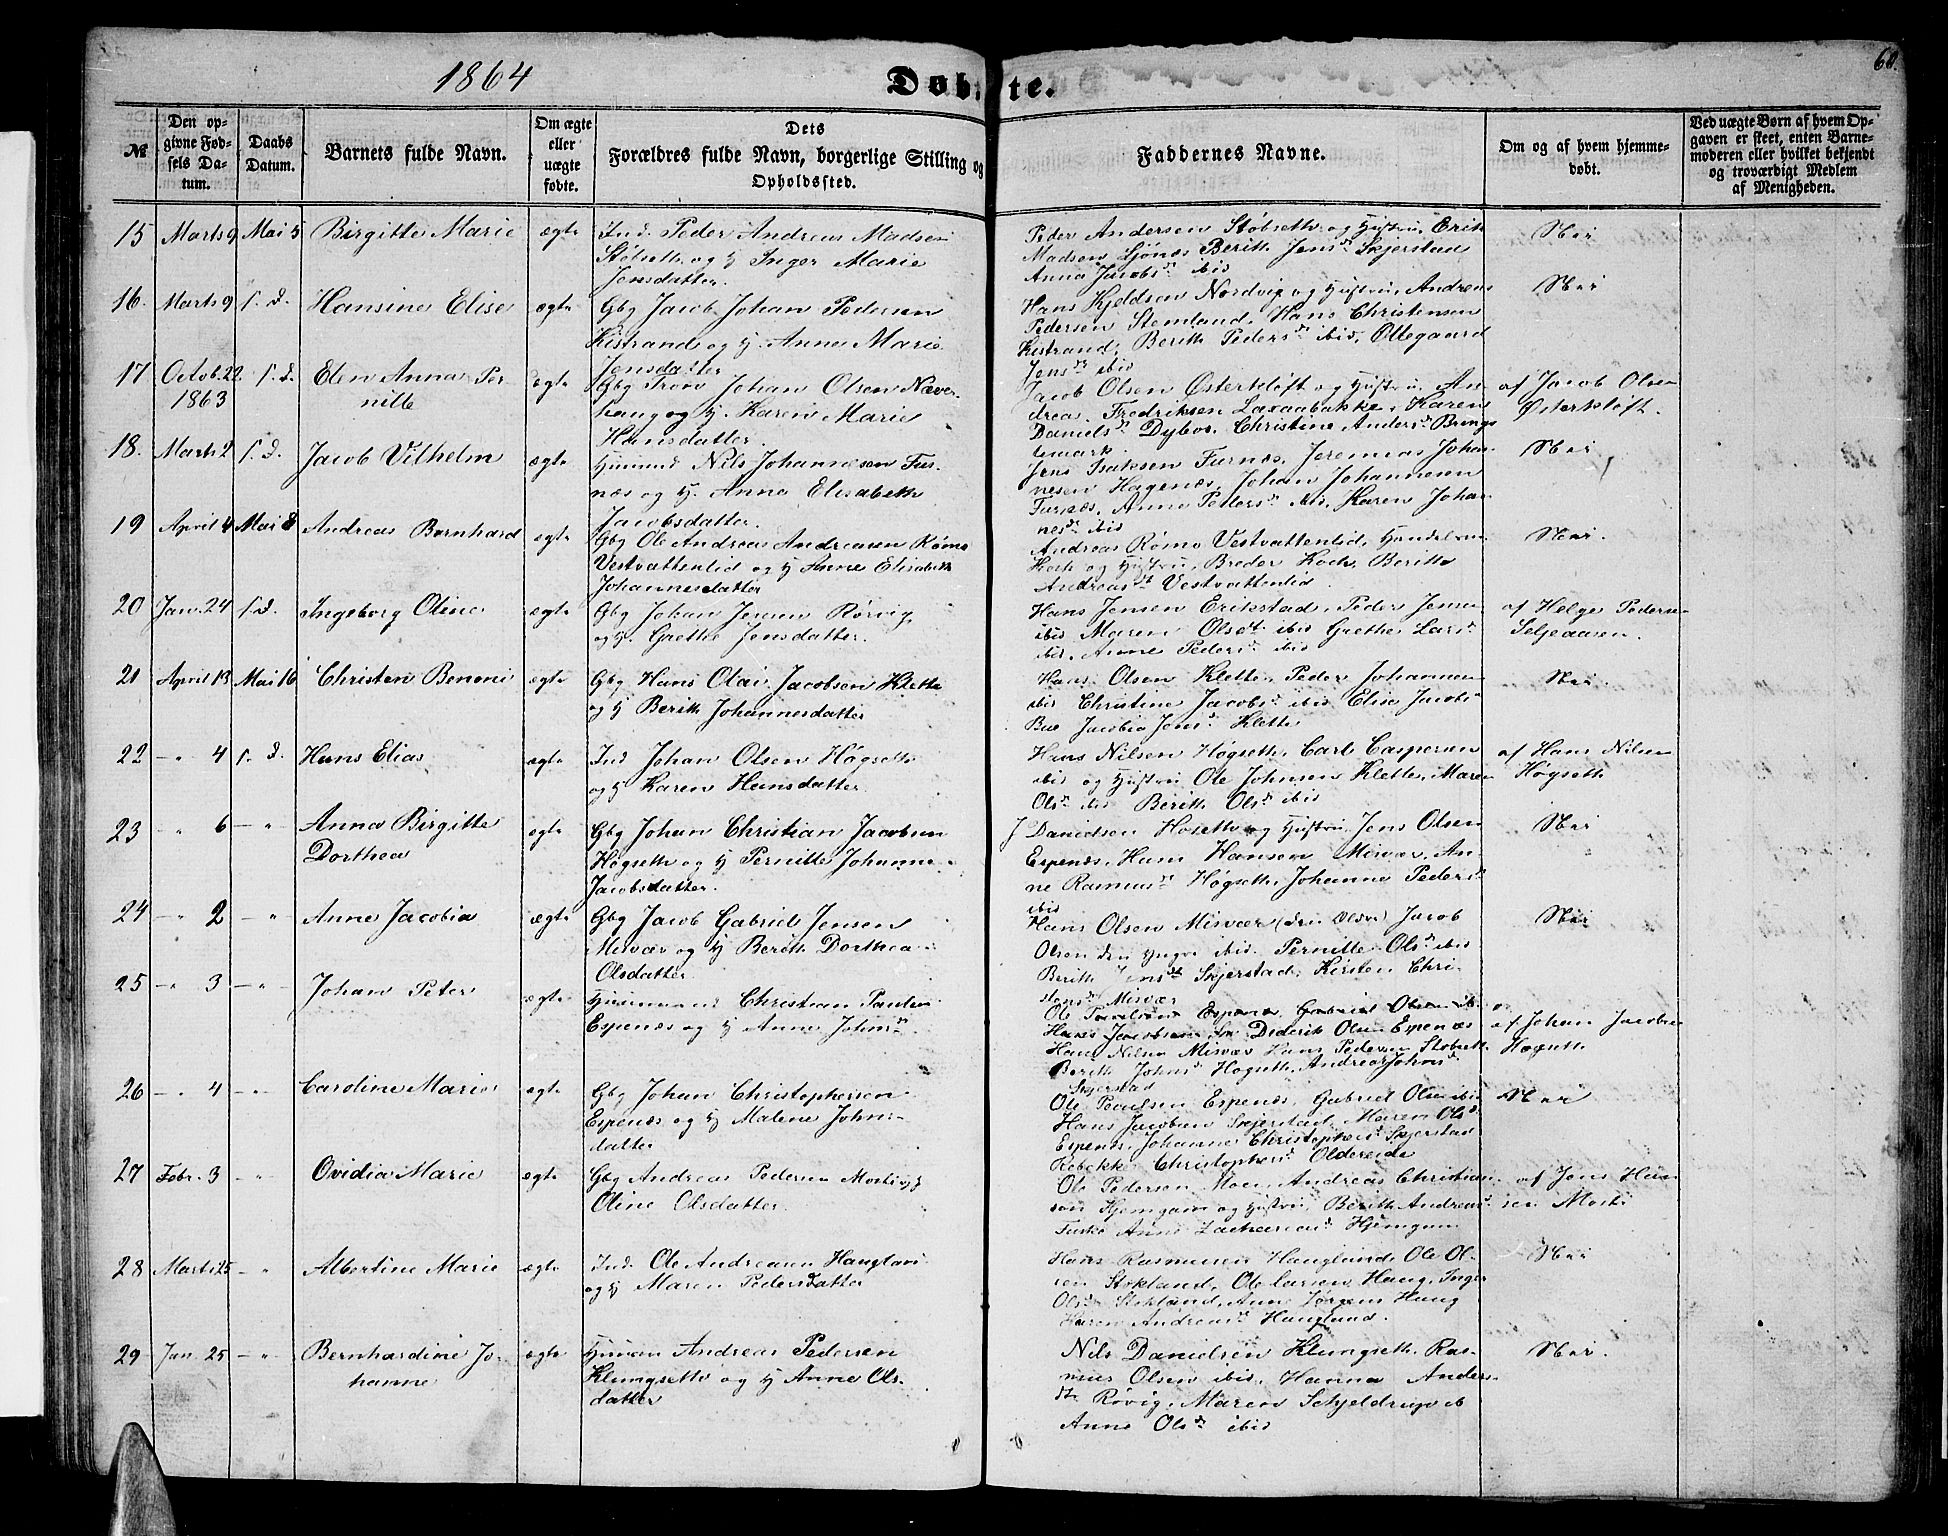 1864
Døbte.
60.
№
Den opgivne Fødsels Datum.
Daabs Datum.
Barnets fulde Navn.
Om ægte eller uægte fødte.
Dets Forældres fulde Navn, borgerlige Stilling og Opholdssted.
Faddernes Navne.
Om og af hvem hjemmedøbt.
Ved uægte Børn af hvem Opgaven er steet, enten Barnemoderen eller hvilket bekjendt og troværdigt Medlem af Menigheden.
15 Marts 9 Mai 5 Birgitte Marie ægte Ind. Peder Andreas Madsen
Støbseth og H Inger Marie
Jensdatter.
Peder Andersen Støbseth og Hustru, Erik
Madsen Ljønes Berith Jensdr Skjerstad
Anna Jacobsdr ibid
Nei
16. Marts 9 s. d. Hansine Elise ægte Gbg Jacob Johan Pedersen
Kistrand og H. Anne Marie
Jensdatter
Hans Kjeldsen Nordvig og Hustru, Andreas
Pedersen Stemland, Hans Christensen
Kistrand, Berith Pedersdr ibid, Ollegaard
Jensdr ibid
Nei
17 Octob. 22 s. d. Elen Anna Per- ægte Gbg Johan Olsen Næver-
1863 nille
haug og H. Karen Marie
Hansdatter.
Jacob Olsen Østerkløft og Hustru, An-
drea Fredriksen Laxaabakke, Karen
Danielsdr Dybvs. Christine Andersdr Brings
temark.
af Jacob Olsen
Østerkløft.
18. Marts 2 s. d. Jacob Vilhelm ægte Husmd Nils Johannesen Fur-
næs og H. Anna Elisabeth
Jacobsdatter.
Jens Isaksen Furnæs, Jeremias Johan-
nesen Hagenæs, Johan Johannesen
Furnæs, Anne Pedersdr Karen Johan
nesdr ibid
Nei
19 April 4 Mai 8 Andreas Bernhard ægte Gbg Ole Andreas Andreasen Rømo
Vestvattenlid og H Anne Elisabeth
Johannesdatter
Andreas Rømo Vestvattenlid,
Koch og Hustru, Breder Koch, Berith
Andreasdr Vestvattenlid
Nei.
20 Jan. 24 s. d. Ingeborg Oline ægte Gbg Johan Jensen Rørvig
og H. Grethe Jensdatter.
Hans Jensen Erikstad, Peder Jensen
ibid Maren Olsdr ibid Grethe Larsdr
ibid, Anne Pedersdr ibid
af Helge Pedersen
Seljeaasen.
21 April 13 Mai 16 Christen Benoni ægte Gbg Hans Olai Jacobsen Klette
og H Berith Johannesdatter
Hans Olsen Klette, Peder Johannesen
ibid Christine Jacobsdr ibid Elise Jacobsdr
Jacobia Jensdr Klette
Nei.
22 - " 4 s. d. Hans Elias ægte Ind Johan Olsen Høgseth
og H Karen Hansdatter
Hans Nilsen Høgseth, Carl Caspersen
ibid og Hustru Ole Johnsen Klette, Maren
Olsdr ibid Berith Olsdr ibid
af Hans Nilsen
Høgseth
23 " 6 - " Anna Birgitte ægte Gbg Johan Christian Jacobsen
Dorthea
Høgseth og H Pernille Johanne
Jacobsdatter.
J Danielsen Hoseth og Hustru, Jens Olsen
Espenæs, Hans Hansen Misvær, An-
ne Rasmusdr Høgseth, Johanne Pedersdr
ibid
Nei
24 - " 2 - " Anne Jacobia ægte Gbg Jacob Gabriel Jensen
Misvær og H Berith Dorthea
Olsdatter
Hans Olsen Misvær (den ældre) Jacob
Olsen den yngre ibid. Pernille Olsdr ibid
Berith Jensdr Skjerstad, Kirsten Chri-
stensdr Misvær
Nei
25 - " 3 - " Johan Peter ægte Husmand Christian Paulsen
Espenæs og H Anne Johnsdr
Ole Espenæs, Gabriel Olsen ib.
Hans Jacobsen Diderik Olsen Espenæs
Hans Nilsen Misvær Hans Pedersen Støbseth
Berith Johnsdr Høgseth, Andrea Johnsdr
Skjerstad
af Johan Jacobsen
Høgseth
26 - " 4 - " Caroline Marie ægte Gbg Johan Christophersen
Espenæs og H Malene Johns-
datter
Ole Paulsen Espenæs, Gabriel Olsen ibid
Hans Jacobsen Skjerstad, Maren Olsdr
Espenæs, Johanne Christophersdr Skjerstad
Rebekke Christophersdr Oldereide
Nei
27 Febr. 3 - " Ovidia Marie ægte Gbg Andreas Pedersen Mosti og H
Oline Olsdatter.
Ole Pedersen Moen, Andreas Christian-
sen Hjemgam og Hustru, Berith Andreasdr
Fuske Anne Zachariasdr Hjemgam
af Jens Han-
sen Mosti
28 Marts 25 - " Albertine Marie ægte Ind. Ole Andreasen Hauglan
og H Maren Pedersdatter
Hans Rasmusen Hauglund, Ole Ol-
sen Stokland, Ole Larsen Haug, Inger
Olsdr Stokland, Anne Jørgensdr Haug
Karen Andreasdr Hauglund.
Nei
29 Jan. 25 - " Bernhardine Jo- ægte Husman Andreas Pedersen
hanne
Klungseth og H Anne Ols-
datter
Nils Danielsen Klungseth, Ras-
mus Olsen ibid, Hanna Anders-
dtr Røvig, Maren Schjeldrup ib
Anne Olsdr ibid
Nei.